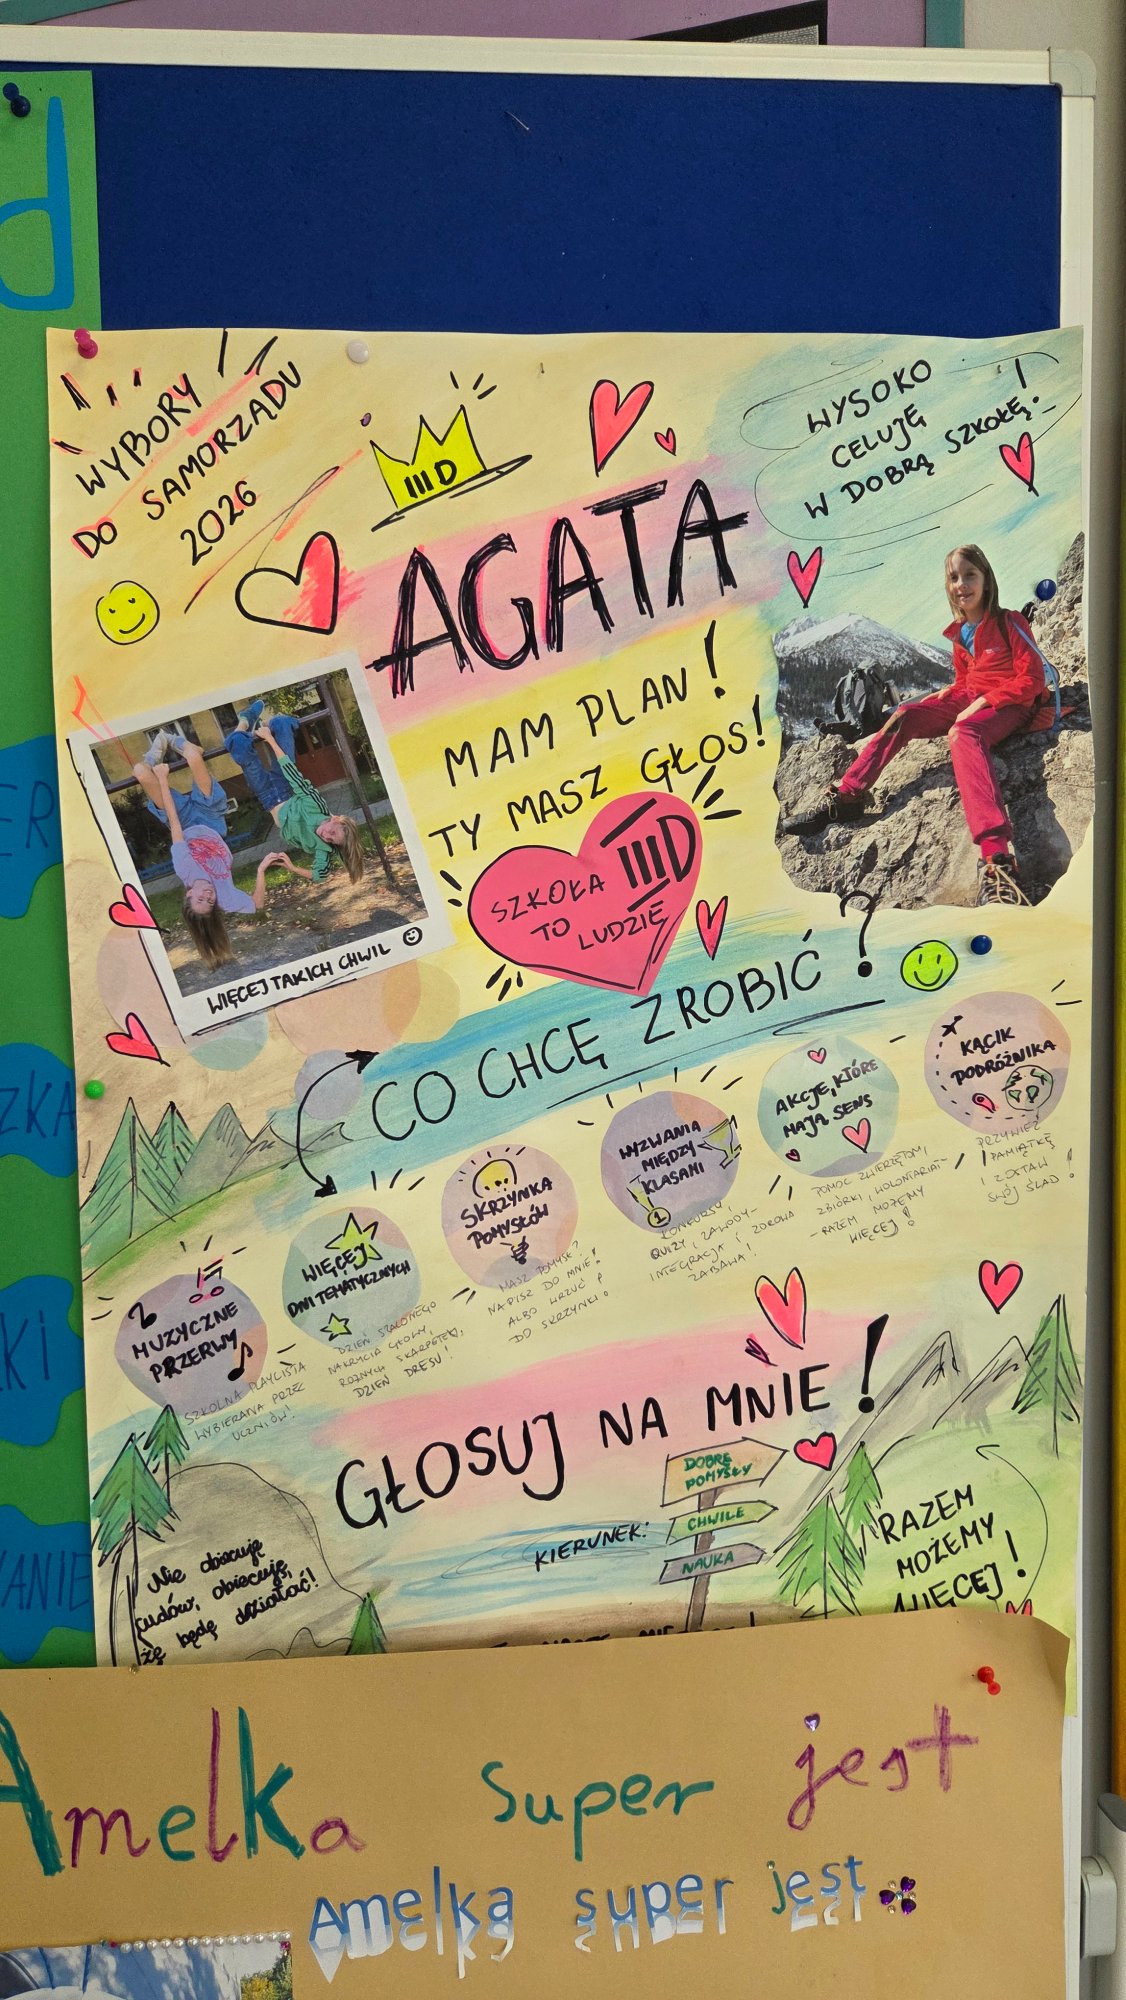 d
WYBORY
DO SAMORZĄDU
2026
IIID
WYSOKO
CELUJĘ
W DOBRĄ SZKOŁĘ!
AGATA
MAM PLAN!
TY MASZ GŁOS!
SZKOŁA IIID
TO LUDZIE
WIĘCEJ TAKICH CHWIL
CO CHCĘ ZROBIĆ?
MUZYCZNE
PRZERWY
SZKOLNA PLAYLISTA
WYBIERANA PRZEZ
UCZNIÓW!
WIĘCEJ
DNI TEMATYCZNYCH
DZIEŃ SZALONEGO
NAKRYCIA GŁOWY,
RÓŻNYCH SKARPETEK,
DZIEŃ DRESU!
SKRZYNKA
POMYSŁÓW
MASZ POMYSŁ?
NAPISZ DO MNIE!
ALBO WRZUĆ
DO SKRZYNKI!
WYZWANIA
MIĘDZY
KLASAMI
1
KONKURSY,
QUIZY, ZAWODY-
INTEGRACJA I ZDROWA
ZABAWA!
AKCJE, KTÓRE
MAJĄ SENS
POMOC ZWIERZĘTOM,
ZBIÓRKI, WOLONTARIAT-
- RAZEM MOŻEMY
WIĘCEJ!
KĄCIK
PODRÓŻNIKA
PRZYWIEŹ
PAMIĄTKĘ
I ZOSTAW
SWÓJ ŚLAD!
GŁOSUJ NA MNIE!
KIERUNEK:
DOBRE
POMYSŁY
CHWILE
NAUKA
Nie obiecuję
cudów, obiecuję,
że będę działać!
RAZEM
MOŻEMY
WIĘCEJ!
ER
ZKA
KI
ANIE
Amelka super jest
Amelka super jest